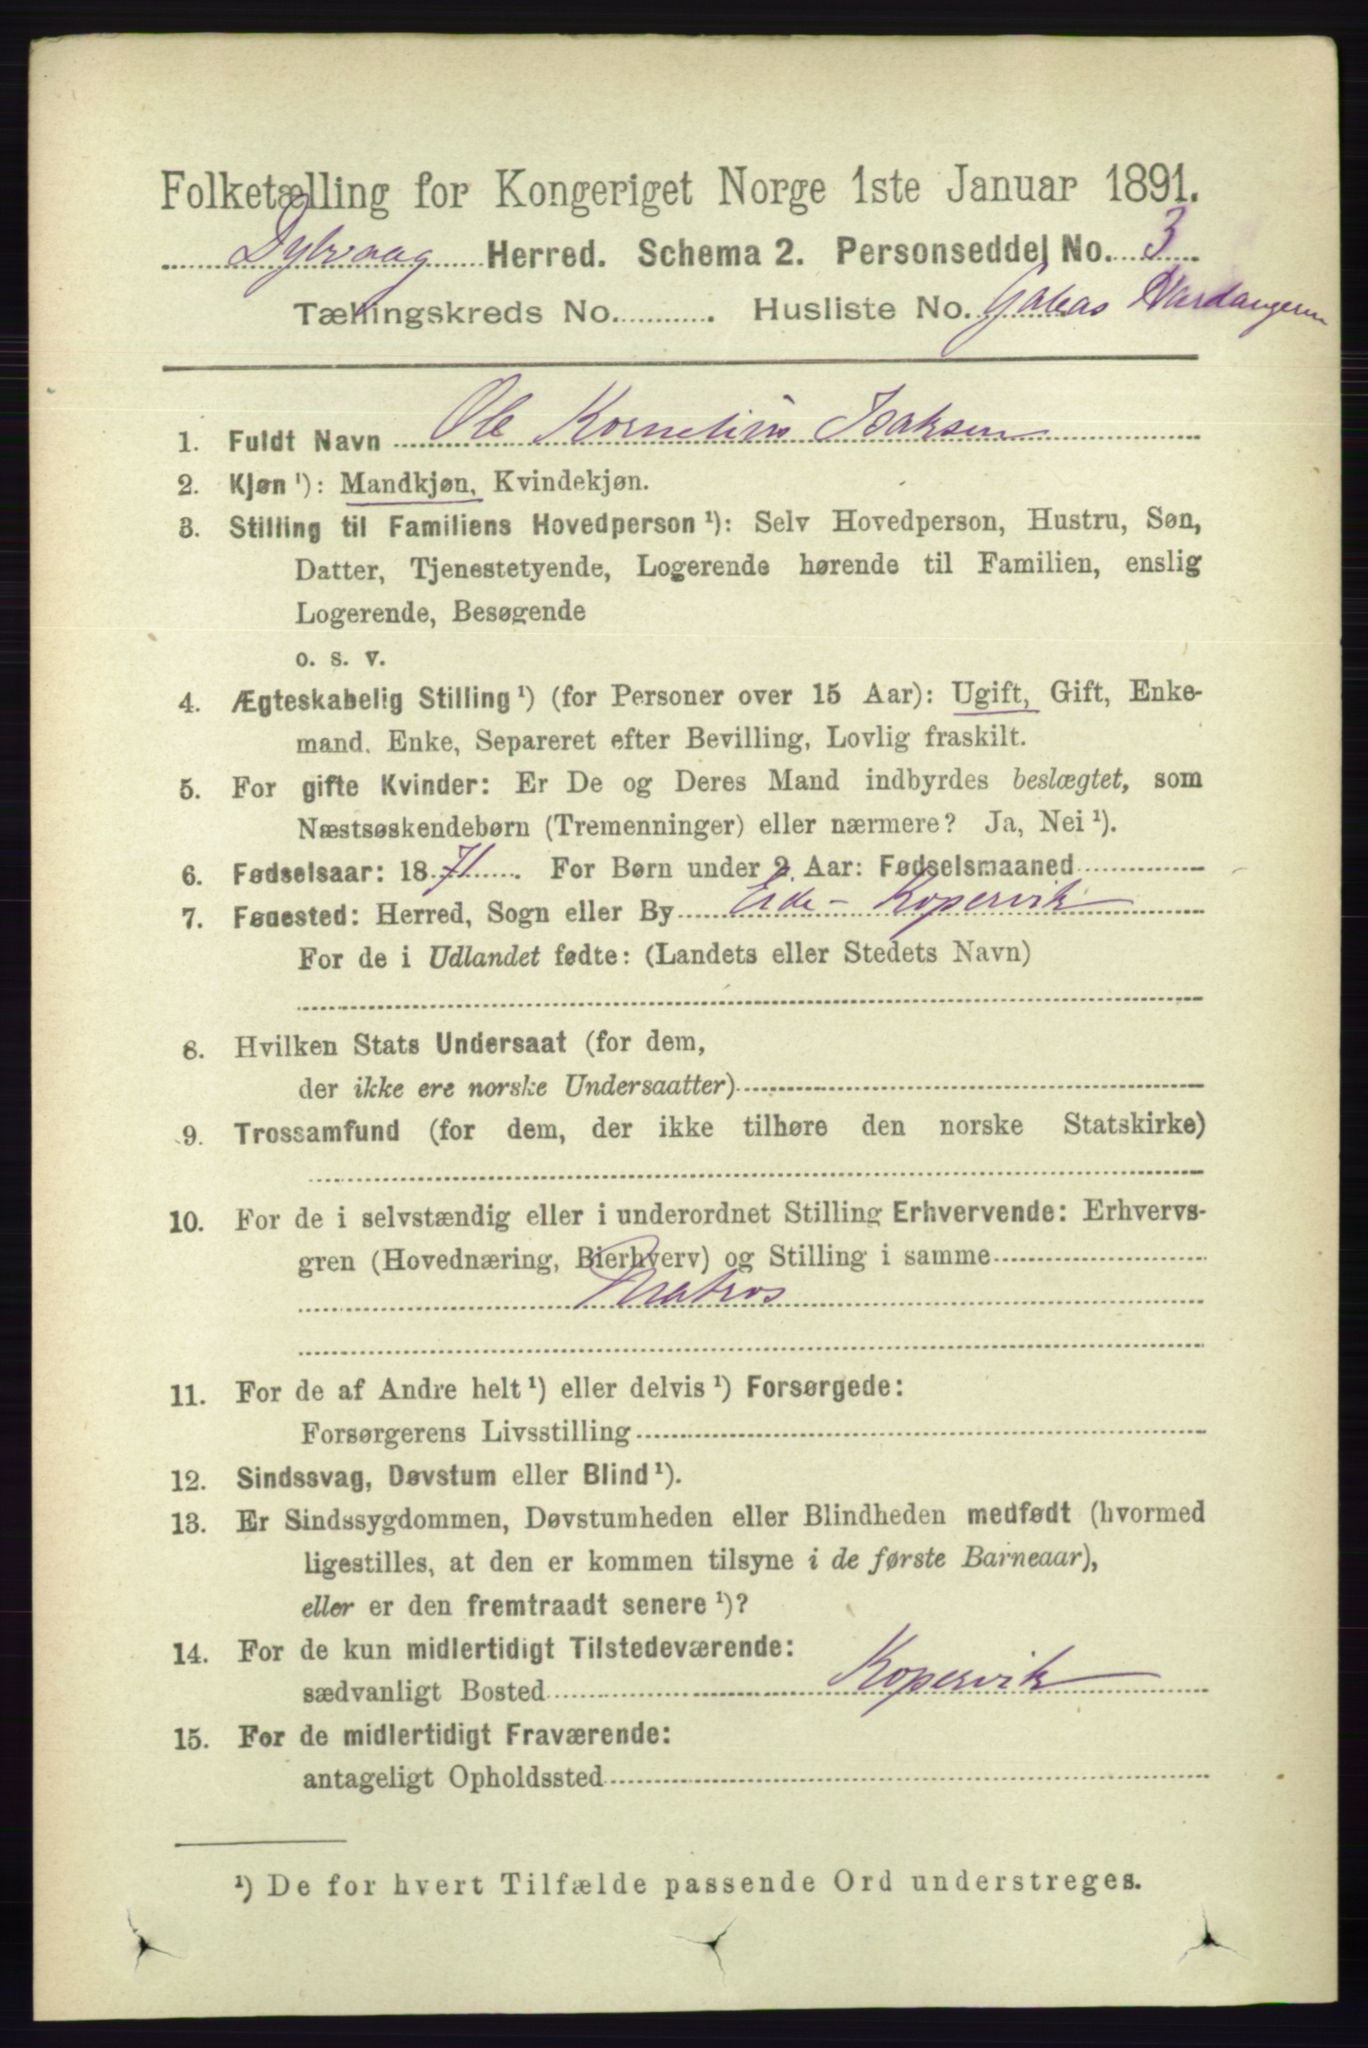 Folketælling for Kongeriget Norge 1ste Januar 1891.
Dybvaag Herred. Schema 2. Personseddel No. 3
Tællingskreds No. . Husliste No. Galeas Hardangeren
1. Fuldt Navn Ole Kornelius Isaksen
2. Kjøn ¹): Mandkjøn, Kvindekjøn.
3. Stilling til Familiens Hovedperson ¹): Selv Hovedperson, Hustru, Søn,
Datter, Tjenestetyende, Logerende hørende til Familien, enslig
Logerende, Besøgende
o. s. v.
4. Ægteskabelig Stilling ¹) (for Personer over 15 Aar): Ugift, Gift, Enke-
mand, Enke, Separeret efter Bevilling, Lovlig fraskilt.
5. For gifte Kvinder: Er De og Deres Mand indbyrdes beslægtet, som
Næstsøskendebørn (Tremenninger) eller nærmere? Ja, Nei ¹).
6. Fødselsaar: 1871. For Børn under 2 Aar: Fødselsmaaned
7. Fødested: Herred, Sogn eller By Eide - Kopervik
For de i Udlandet fødte: (Landets eller Stedets Navn)
8. Hvilken Stats Undersaat (for dem,
der ikke ere norske Undersaatter)
9. Trossamfund (for dem, der ikke tilhøre den norske Statskirke)
10. For de i selvstændig eller i underordnet Stilling Erhvervende: Erhvervs-
gren (Hovednæring, Bierhverv) og Stilling i samme
Matros
11. For de af Andre helt ¹) eller delvis ¹) Forsørgede:
Forsørgerens Livsstilling
12. Sindssvag, Døvstum eller Blind ¹).
13. Er Sindssygdommen, Døvstumheden eller Blindheden medfødt (hvormed
ligestilles, at den er kommen tilsyne i de første Barneaar),
eller er den fremtraadt senere ¹)?
14. For de kun midlertidigt Tilstedeværende:
sædvanligt Bosted Kopervik
15. For de midlertidigt Fraværende:
antageligt Opholdssted
¹) De for hvert Tilfælde passende Ord understreges.